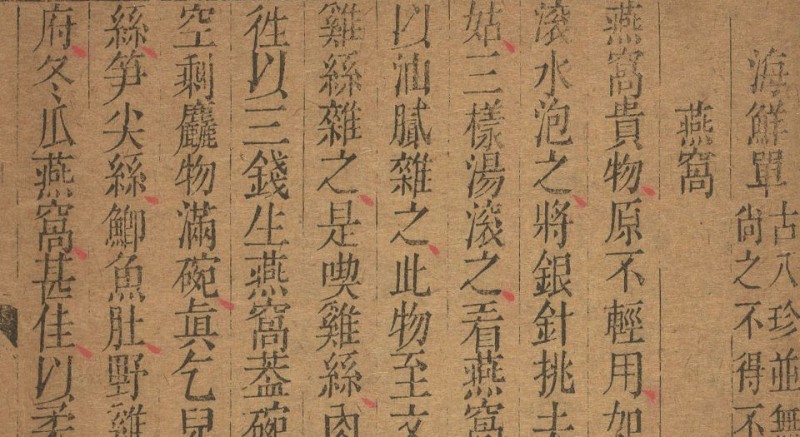 海鮮單
古八珍並無
尚之不得不
燕窩
燕窩貴物、原不輕用、如
滾水泡之、將銀針挑去
姑、三樣湯滾之、看燕窩
以油膩雜之、此物至文
雞絲雜之、是喫雞絲、肉
徃以三錢生燕窩葢碗
空剩麤物滿碗、眞乞兒
絲、笋尖絲、鯽魚肚、野雞
府、冬瓜燕窩、甚佳、以柔